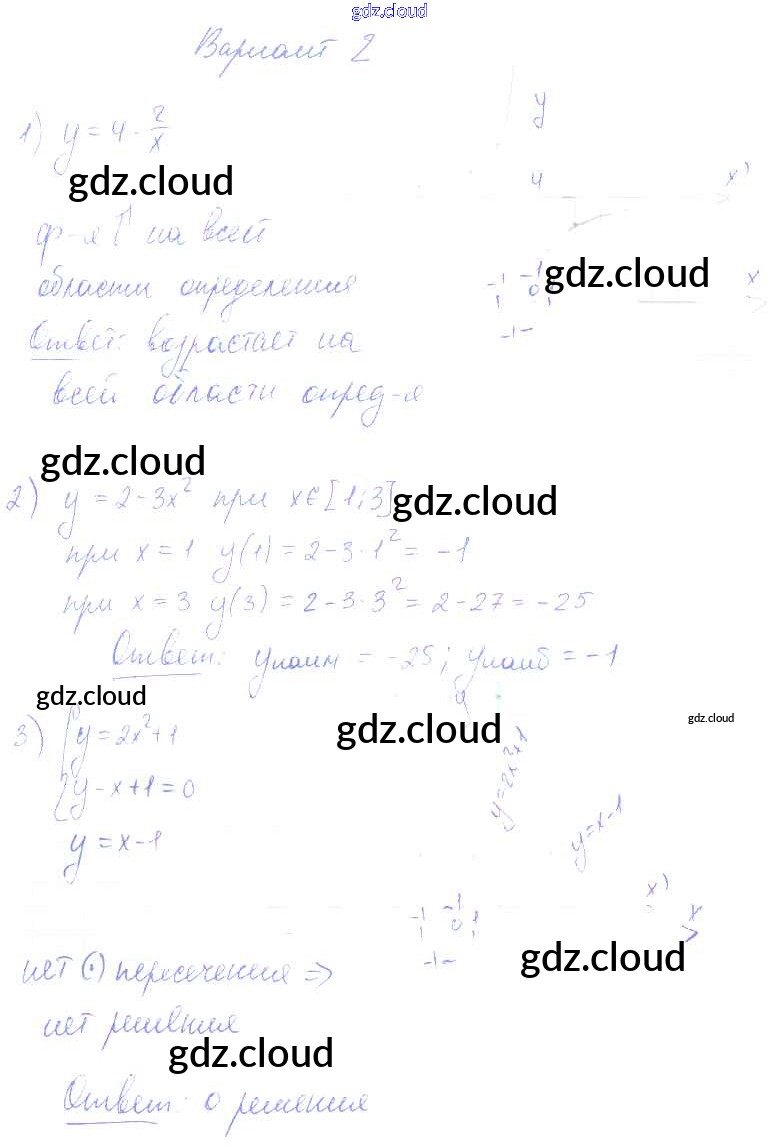 gdz.cloud
Вариант 2
1) y = 4 - 2/x
gdz.cloud
y
4
x'
ф-я ↑ на всей
области определения
-1 -1 0 1
gdz.cloud
x
-1
Ответ: возрастает на
всей области опред-я
gdz.cloud
2) y = 2 - 3x² при x ∈ [1; 3]
gdz.cloud
при x = 1 y(1) = 2 - 3 · 1² = -1
при x = 3 y(3) = 2 - 3 · 3² = 2 - 27 = -25
Ответ: yнаим = -25; yнаиб = -1
gdz.cloud
y
gdz.cloud
gdz.cloud
3) { y = 2x² + 1
y - x + 1 = 0
y = x - 1
y = x - 1
x'
-1 1 0 1
x
-1
gdz.cloud
нет (·) пересечения =>
нет решения
gdz.cloud
Ответ: 0 решения